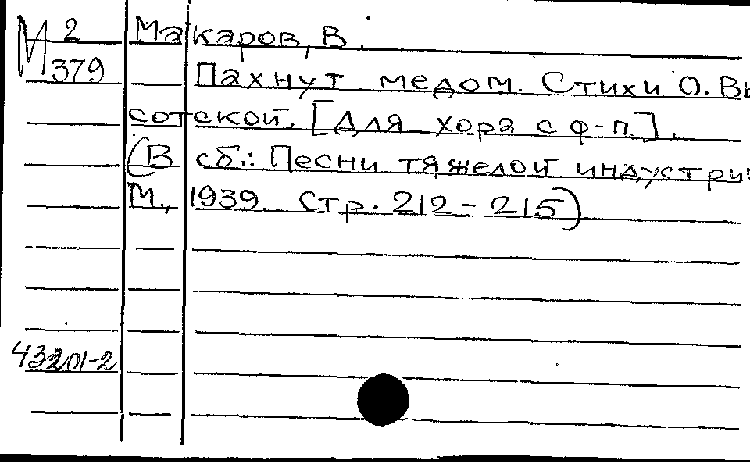 М 2
379
Макаров, В.
Пахнут медом. Стихи О. Вы
сотской. [Для хора с ф-п.].
(В сб.: Песни тяжелой индустри
М., 1939. Стр. 212-215)
43201-2